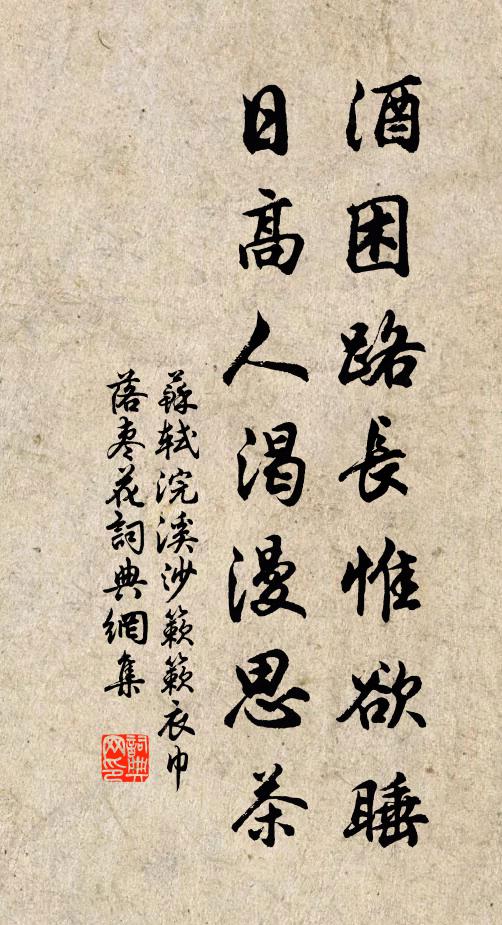 酒困路長惟欲睡
日高人渴漫思茶
蘇軾浣溪沙簌簌衣巾
落枣花詞典網集
詞典网印